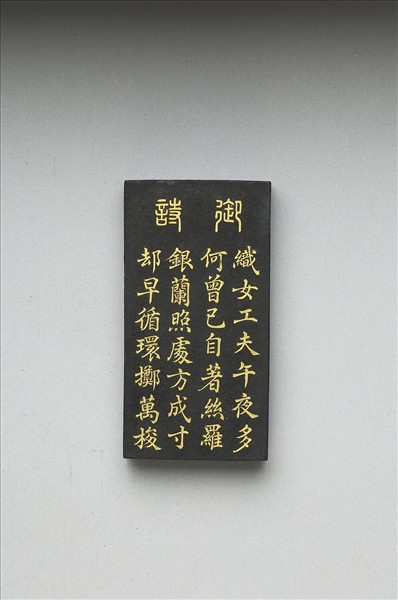 御詩
織女工夫午夜多
何曾已自著絲羅
銀蘭照處方成寸
却早循環擲萬梭